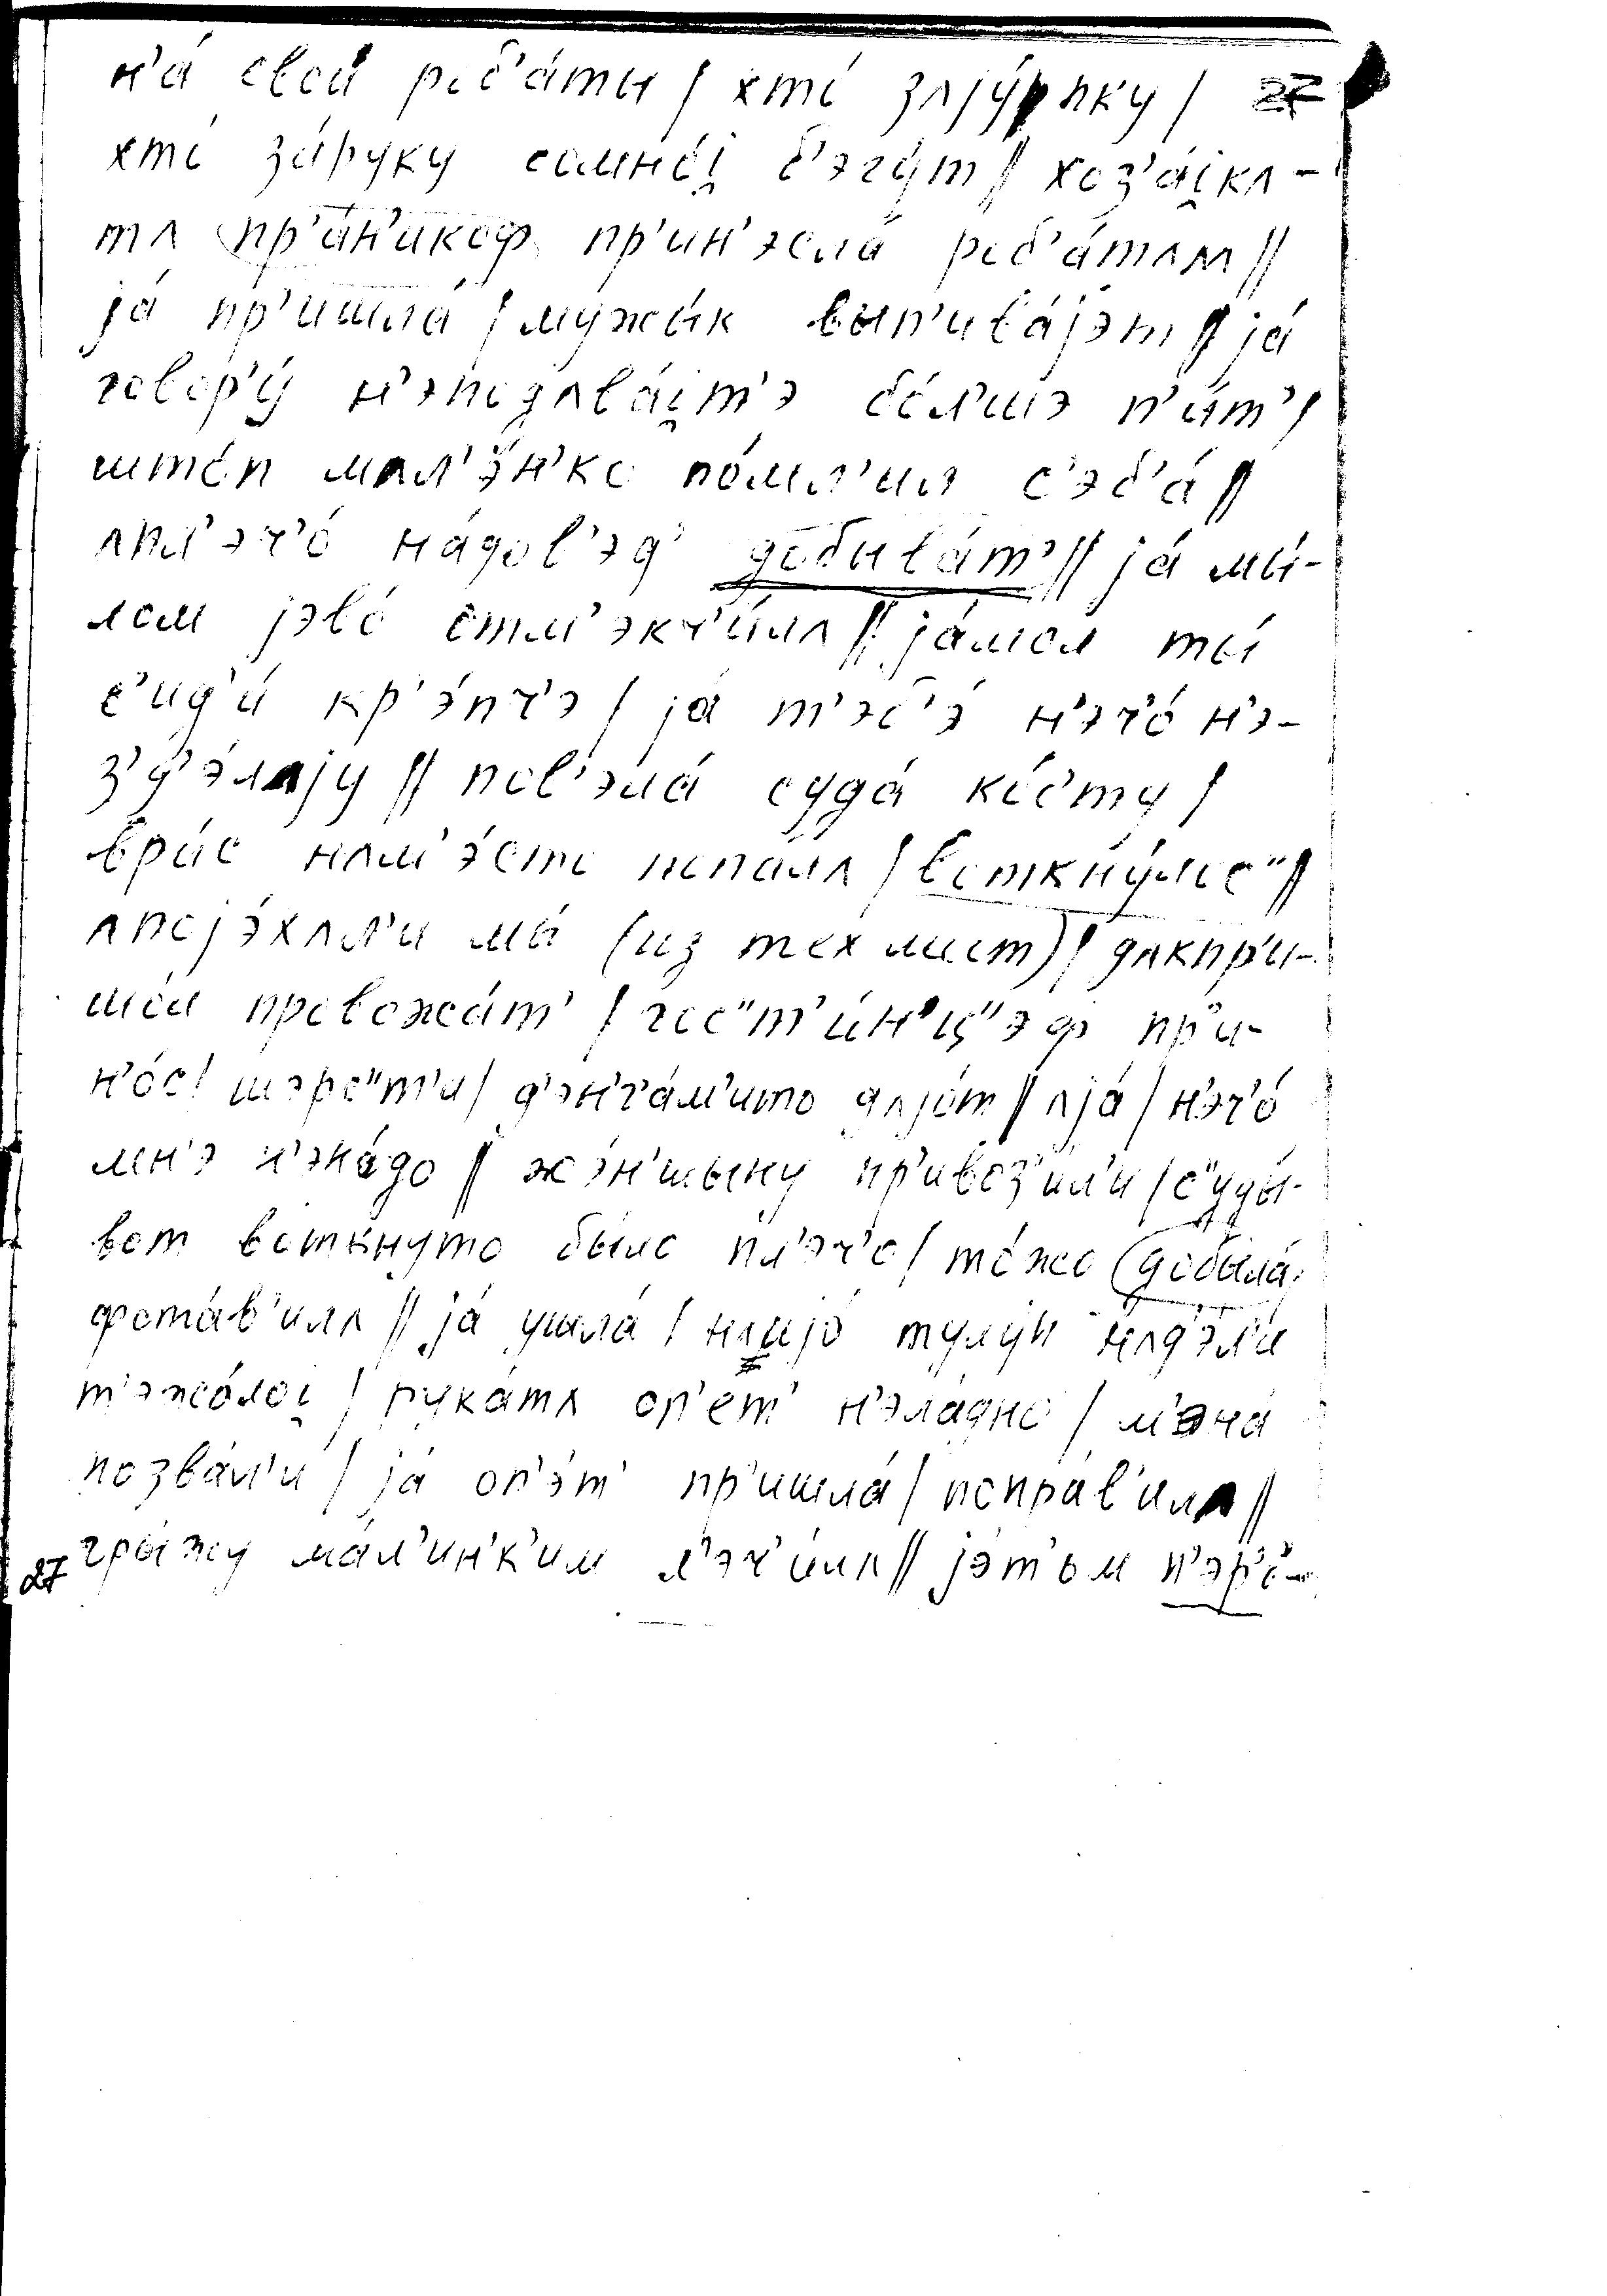 н'а́ свои́ роб'а́ты / хто́ злjу́пку / 27
хто́ за́руку сомно́i̯ б'эгу́т // хоз'а́i̯кл-
тл пр'а́н'икоф пр'ин'эсла́ роб'а́тлм //
jа́ пр'ишла́ / мужы́к вып'ива́jэт // jа́
говор'у́ н'эподлва́i̯т'э бо́л'шэ п'и́т' /
што́п мл'э́н'ко по́мн'ил с'эб'а́ //
лпл'эч'о́ на́дов'эд' добыва́т' // jа́ мы́-
лом jэво́ отм'экч'и́лл // jа́мол ты́
с'ид'и́ кр'э́пч'э / jа́ т'эб'э́ н'эч'о́ н'э-
з'д'э́ллjу // пов'эла́ суда́ ко́с'ту /
вра́с нлм'э́сто попа́лл / воткну́лос" //
лпоjэ́хлл'и мы́ (из тех мест) / длкпр'и-
шо́л провожа́т' / гос"т'и́н'ц"эф пр'и-
н'о́с / шэрс"т'и / д'эн'га́м'ито длjо́т // лjа́ / н'эч'о́
мн'э н'эна́до // жэ́н'шыну пр'ивоз'и́л'и / с"уды́-
вот во́ткнуто бы́ло пл'эч'о / то́жо добыла́
фста́в'илл // jа́ ушла́ / нлиjо́ тулу́п нлд'э́л'и
т'эжо́лоi̯ / рука́тл оп'е́т' н'эла́дно / м'эна́
позва́л'и / jа́ оп'э́т' пр'ишла́ / попра́в'илл //
27 гры́жу ма́л'ин'к'им л'эч'и́лл // jэ́т'ьм п'эр'о-